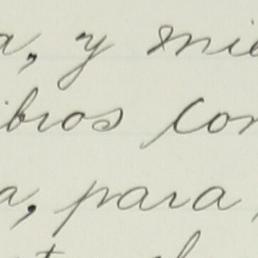 a, y mie
ibros con
a, para